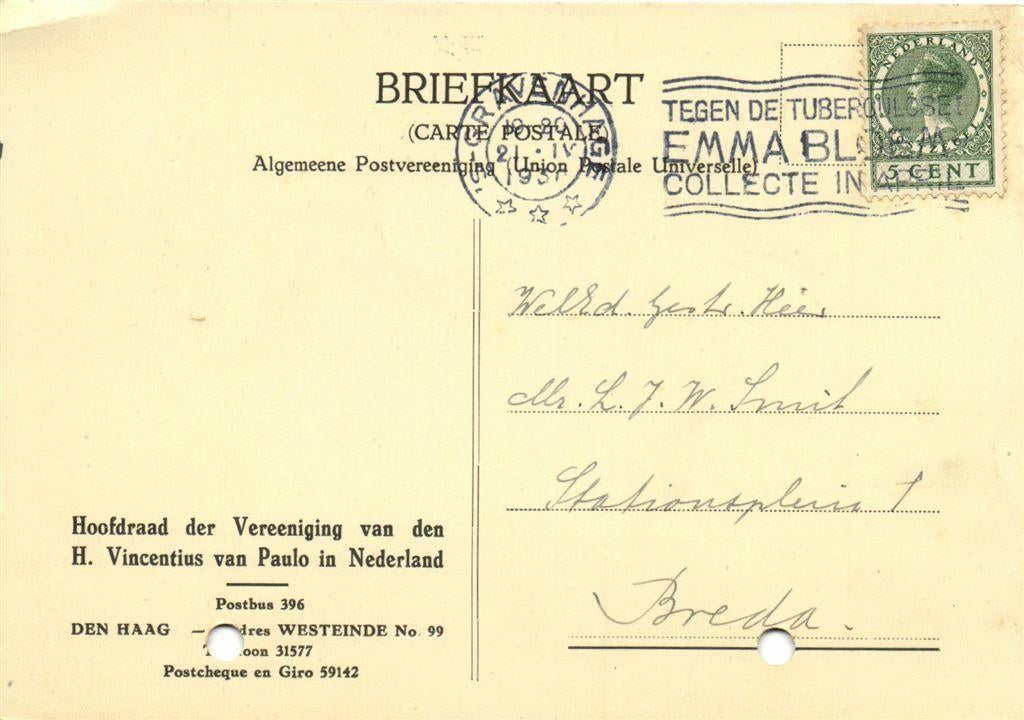 BRIEFKAART
(CARTE POSTALE)
Algemeene Postvereeniging (Union Postale Universelle)
'S GRAVENHAGE
21.IV
1937
TEGEN DE TUBERCULOSE!
EMMA BLOEM
COLLECTE IN APRIL
NEDERLAND
5 CENT
WelEd. Gestr. Heer
Mr. L. J. W. Smit
Stationsplein 1
Breda.
Hoofdraad der Vereeniging van den
H. Vincentius van Paulo in Nederland
Postbus 396
DEN HAAG — dres WESTEINDE No. 99
T oon 31577
Postcheque en Giro 59142